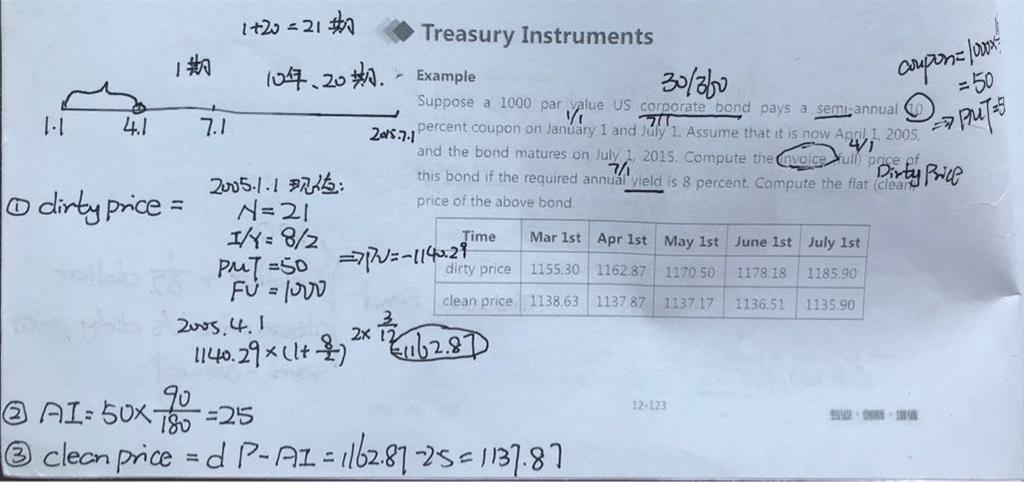 1+20=21期
Treasury Instruments
1期
10年、20期.
Example
30/360
coupon=1000×
=50
⇒PMT=5
Suppose a 1000 par value US corporate bond pays a semi-annual 10
1/1
7/1
percent coupon on January 1 and July 1. Assume that it is now April 1, 2005,
1.1
4.1
7.1
2015.7.1
4/1
and the bond matures on July 1, 2015. Compute the (invoice, full) price of
7/1
Dirty Price
this bond if the required annual yield is 8 percent. Compute the flat (clean)
price of the above bond.
2005.1.1 现值:
① dirty price =
N=21
I/Y=8/2
PMT=50
FV=1000
⇒PV=-1140.29
Time Mar 1st Apr 1st May 1st June 1st July 1st
dirty price 1155.30 1162.87 1170.50 1178.18 1185.90
clean price 1138.63 1137.87 1137.17 1136.51 1135.90
2005.4.1
1140.29×(1+8/2)^2×3/12=1162.87
② AI=50×90/180=25
12-123
专业·创新·增值
③ clean price = dP-AI=1162.87-25=1137.87